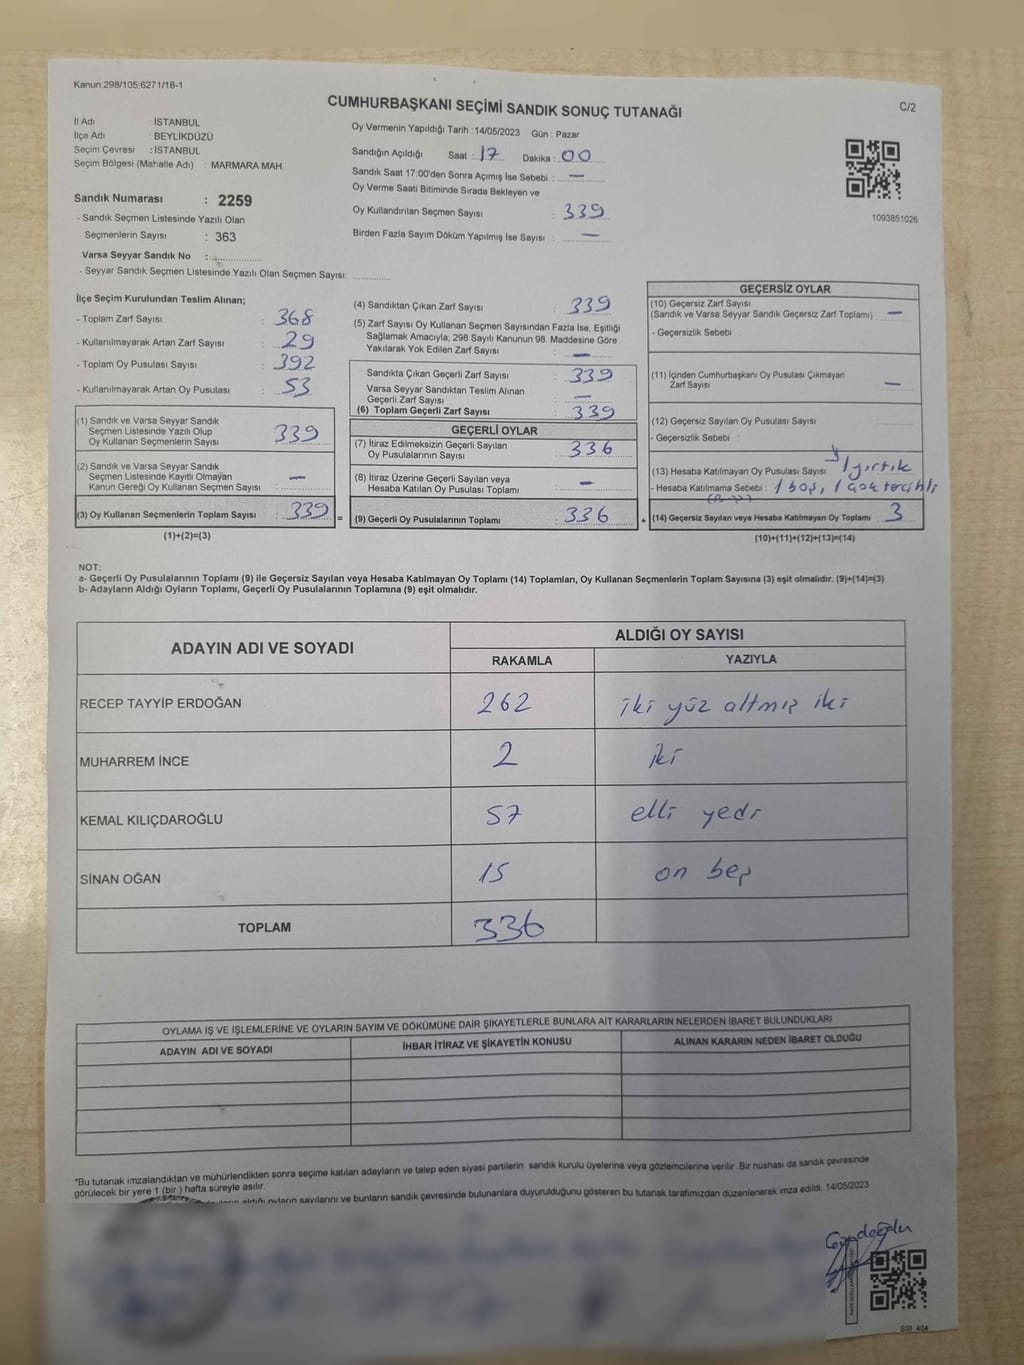 Kanun:298/105:6271/18-1
CUMHURBAŞKANI SEÇİMİ SANDIK SONUÇ TUTANAĞI
C/2
İl Adı : İSTANBUL
İlçe Adı : BEYLİKDÜZÜ
Seçim Çevresi : İSTANBUL
Seçim Bölgesi (Mahalle Adı) : MARMARA MAH.
Sandık Numarası : 2259
- Sandık Seçmen Listesinde Yazılı Olan
Seçmenlerin Sayısı : 363
Varsa Seyyar Sandık No :
- Seyyar Sandık Seçmen Listesinde Yazılı Olan Seçmen Sayısı:
Oy Vermenin Yapıldığı Tarih :14/05/2023 Gün : Pazar
Sandığın Açıldığı Saat : 17 Dakika : 00
Sandık Saat 17:00'den Sonra Açımış İse Sebebi : —
Oy Verme Saati Bitiminde Sırada Bekleyen ve
Oy Kullandırılan Seçmen Sayısı : 339
Birden Fazla Sayım Döküm Yapılmış İse Sayısı : —
1093851026
İlçe Seçim Kurulundan Teslim Alınan;
- Toplam Zarf Sayısı : 368
- Kullanılmayarak Artan Zarf Sayısı : 29
- Toplam Oy Pusulası Sayısı : 392
- Kullanılmayarak Artan Oy Pusulası : 53
(1) Sandık ve Varsa Seyyar Sandık
Seçmen Listesinde Yazılı Olup
Oy Kullanan Seçmenlerin Sayısı 339
(2) Sandık ve Varsa Seyyar Sandık
Seçmen Listesinde Kayıtlı Olmayan
Kanun Gereği Oy Kullanan Seçmen Sayısı : —
(3) Oy Kullanan Seçmenlerin Toplam Sayısı : 339 =
(1)+(2)=(3)
(4) Sandıktan Çıkan Zarf Sayısı : 339
(5) Zarf Sayısı Oy Kullanan Seçmen Sayısından Fazla İse, Eşitliği
Sağlamak Amacıyla; 298 Sayılı Kanunun 98. Maddesine Göre
Yakılarak Yok Edilen Zarf Sayısı : —
Sandıkta Çıkan Geçerli Zarf Sayısı : 339
Varsa Seyyar Sandıktan Teslim Alınan
Geçerli Zarf Sayısı : —
(6) Toplam Geçerli Zarf Sayısı : 339
GEÇERLİ OYLAR
(7) İtiraz Edilmeksizin Geçerli Sayılan
Oy Pusulalarının Sayısı : 336
(8) İtiraz Üzerine Geçerli Sayılan veya
Hesaba Katılan Oy Pusulası Toplamı : —
(9) Geçerli Oy Pusulalarının Toplamı : 336 +
GEÇERSİZ OYLAR
(10) Geçersiz Zarf Sayısı
(Sandık ve Varsa Seyyar Sandık Geçersiz Zarf Toplamı) : —
- Geçersizlik Sebebi :
(11) İçinden Cumhurbaşkanı Oy Pusulası Çıkmayan
Zarf Sayısı : —
(12) Geçersiz Sayılan Oy Pusulası Sayısı
- Geçersizlik Sebebi :
(13) Hesaba Katılmayan Oy Pusulası Sayısı 1 yırtık
- Hesaba Katılmama Sebebi : 1 boş, 1 çok tercihli
(14) Geçersiz Sayılan veya Hesaba Katılmayan Oy Toplamı : 3
(10)+(11)+(12)+(13)=(14)
NOT:
a- Geçerli Oy Pusulalarının Toplamı (9) ile Geçersiz Sayılan veya Hesaba Katılmayan Oy Toplamı (14) Toplamları, Oy Kullanan Seçmenlerin Toplam Sayısına (3) eşit olmalıdır. (9)+(14)=(3)
b- Adayların Aldığı Oyların Toplamı, Geçerli Oy Pusulalarının Toplamına (9) eşit olmalıdır.
ADAYIN ADI VE SOYADI ALDIĞI OY SAYISI
RAKAMLA YAZIYLA
RECEP TAYYİP ERDOĞAN 262 iki yüz altmış iki
MUHARREM İNCE 2 iki
KEMAL KILIÇDAROĞLU 57 elli yedi
SİNAN OĞAN 15 on beş
TOPLAM 336
OYLAMA İŞ VE İŞLEMLERİNE VE OYLARIN SAYIM VE DÖKÜMÜNE DAİR ŞİKAYETLERLE BUNLARA AİT KARARLARIN NELERDEN İBARET BULUNDUKLARI
ADAYIN ADI VE SOYADI İHBAR İTİRAZ VE ŞİKAYETİN KONUSU ALINAN KARARIN NEDEN İBARET OLDUĞU
*Bu tutanak imzalandıktan ve mühürlendikten sonra seçime katılan adayların ve talep eden siyasi partilerin sandık kurulu üyelerine veya gözlemcilerine verilir .Bir nüshası da sandık çevresinde
görülecek bir yere 1 (bir ) hafta süreyle asılır.
aldığı oyların sayılarını ve bunların sandık çevresinde bulunanlara duyurulduğunu gösteren bu tutanak tarafımızdan düzenlenerek imza edildi. 14/05/2023
SSI 404